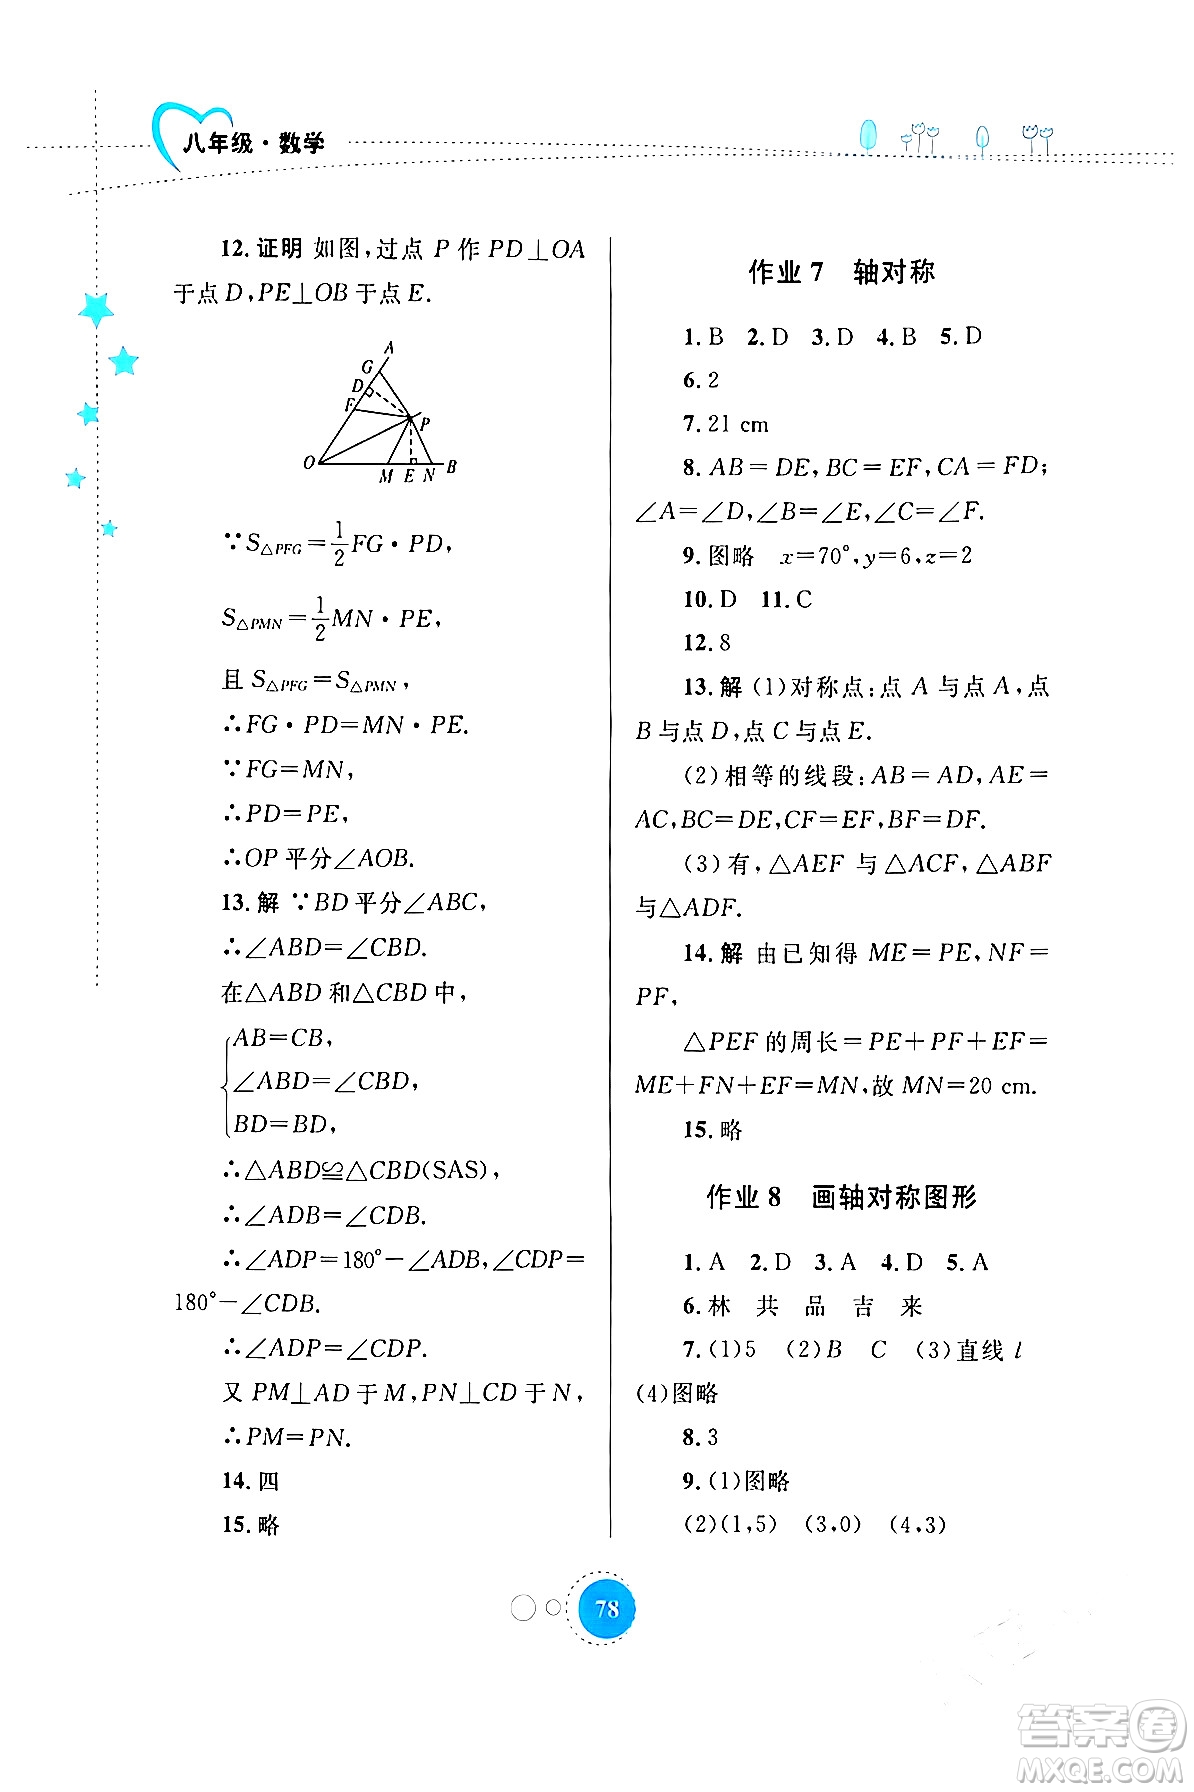 八年级·数学
12.证明 如图,过点 P 作 PD⊥OA
于点 D,PE⊥OB 于点 E.
A
G
D
F
P
O
M E N B
∵S△PFG=1/2FG·PD,
S△PMN=1/2MN·PE,
且 S△PFG=S△PMN,
∴FG·PD=MN·PE.
∵FG=MN,
∴PD=PE,
∴OP 平分∠AOB.
13.解 ∵BD 平分∠ABC,
∴∠ABD=∠CBD.
在△ABD 和△CBD 中,
AB=CB,
∠ABD=∠CBD,
BD=BD,
∴△ABD≌△CBD(SAS),
∴∠ADB=∠CDB.
∴∠ADP=180°-∠ADB,∠CDP=
180°-∠CDB.
∴∠ADP=∠CDP.
又 PM⊥AD 于 M,PN⊥CD 于 N,
∴PM=PN.
14.四
15.略
作业 7 轴对称
1.B 2.D 3.D 4.B 5.D
6.2
7.21 cm
8.AB=DE,BC=EF,CA=FD;
∠A=∠D,∠B=∠E,∠C=∠F.
9.图略 x=70°,y=6,z=2
10.D 11.C
12.8
13.解 (1)对称点:点 A 与点 A,点
B 与点 D,点 C 与点 E.
(2)相等的线段:AB=AD,AE=
AC,BC=DE,CF=EF,BF=DF.
(3)有,△AEF 与△ACF,△ABF
与△ADF.
14.解 由已知得 ME=PE,NF=
PF,
△PEF 的周长=PE+PF+EF=
ME+FN+EF=MN,故 MN=20 cm.
15.略
作业 8 画轴对称图形
1.A 2.D 3.A 4.D 5.A
6.林 共 品 吉 来
7.(1)5 (2)B C (3)直线 l
(4)图略
8.3
9.(1)图略
(2)(1,5) (3,0) (4,3)
78
答案卷
MXQE.COM